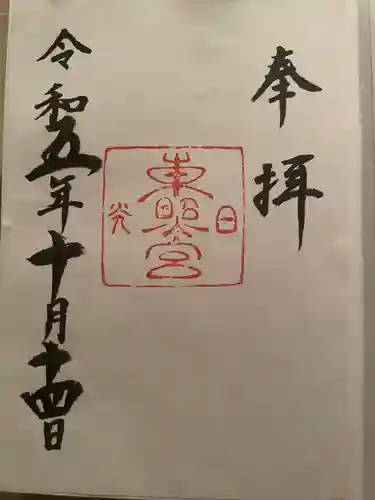 奉拝
日光
東照宮
令和五年十月十四日